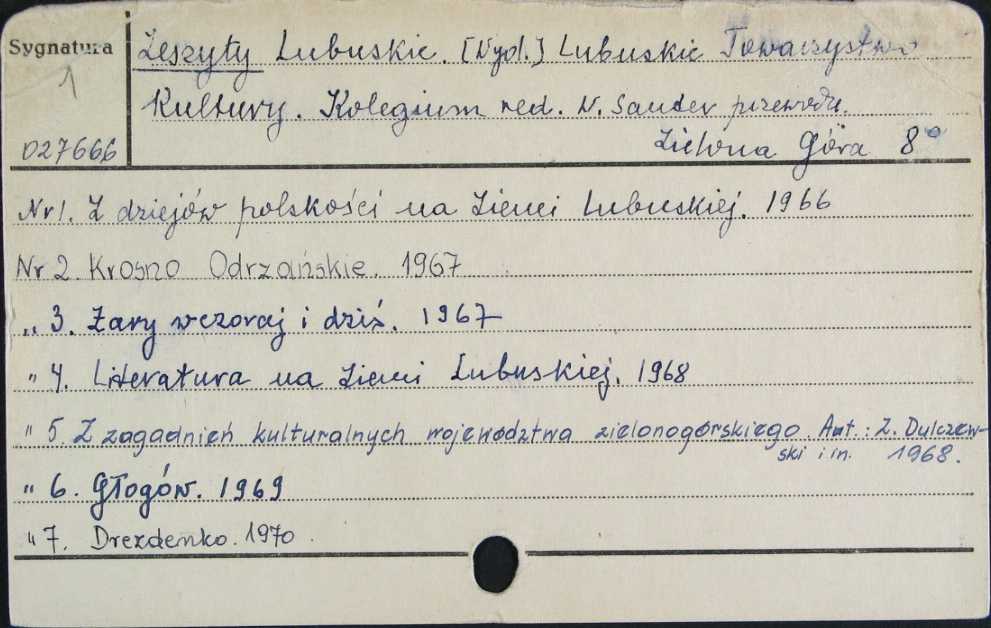 Sygnatura
1
027666
Zeszyty Lubuskie. [Wyd.] Lubuskie Towarzystwo
Kultury. Kolegium red. W. Sauter przewodn.
Zielona Góra 8°
Nr 1. Z dziejów polskości na Ziemi Lubuskiej. 1966
Nr 2. Krosno Odrzańskie. 1967
„ 3. Żary wczoraj i dziś. 1967
" 4. Literatura na Ziemi Lubuskiej. 1968
" 5. Z zagadnień kulturalnych województwa zielonogórskiego. Aut.: Z. Dulczew-
ski i in. 1968.
" 6. Głogów. 1969
" 7. Drezdenko. 1970.